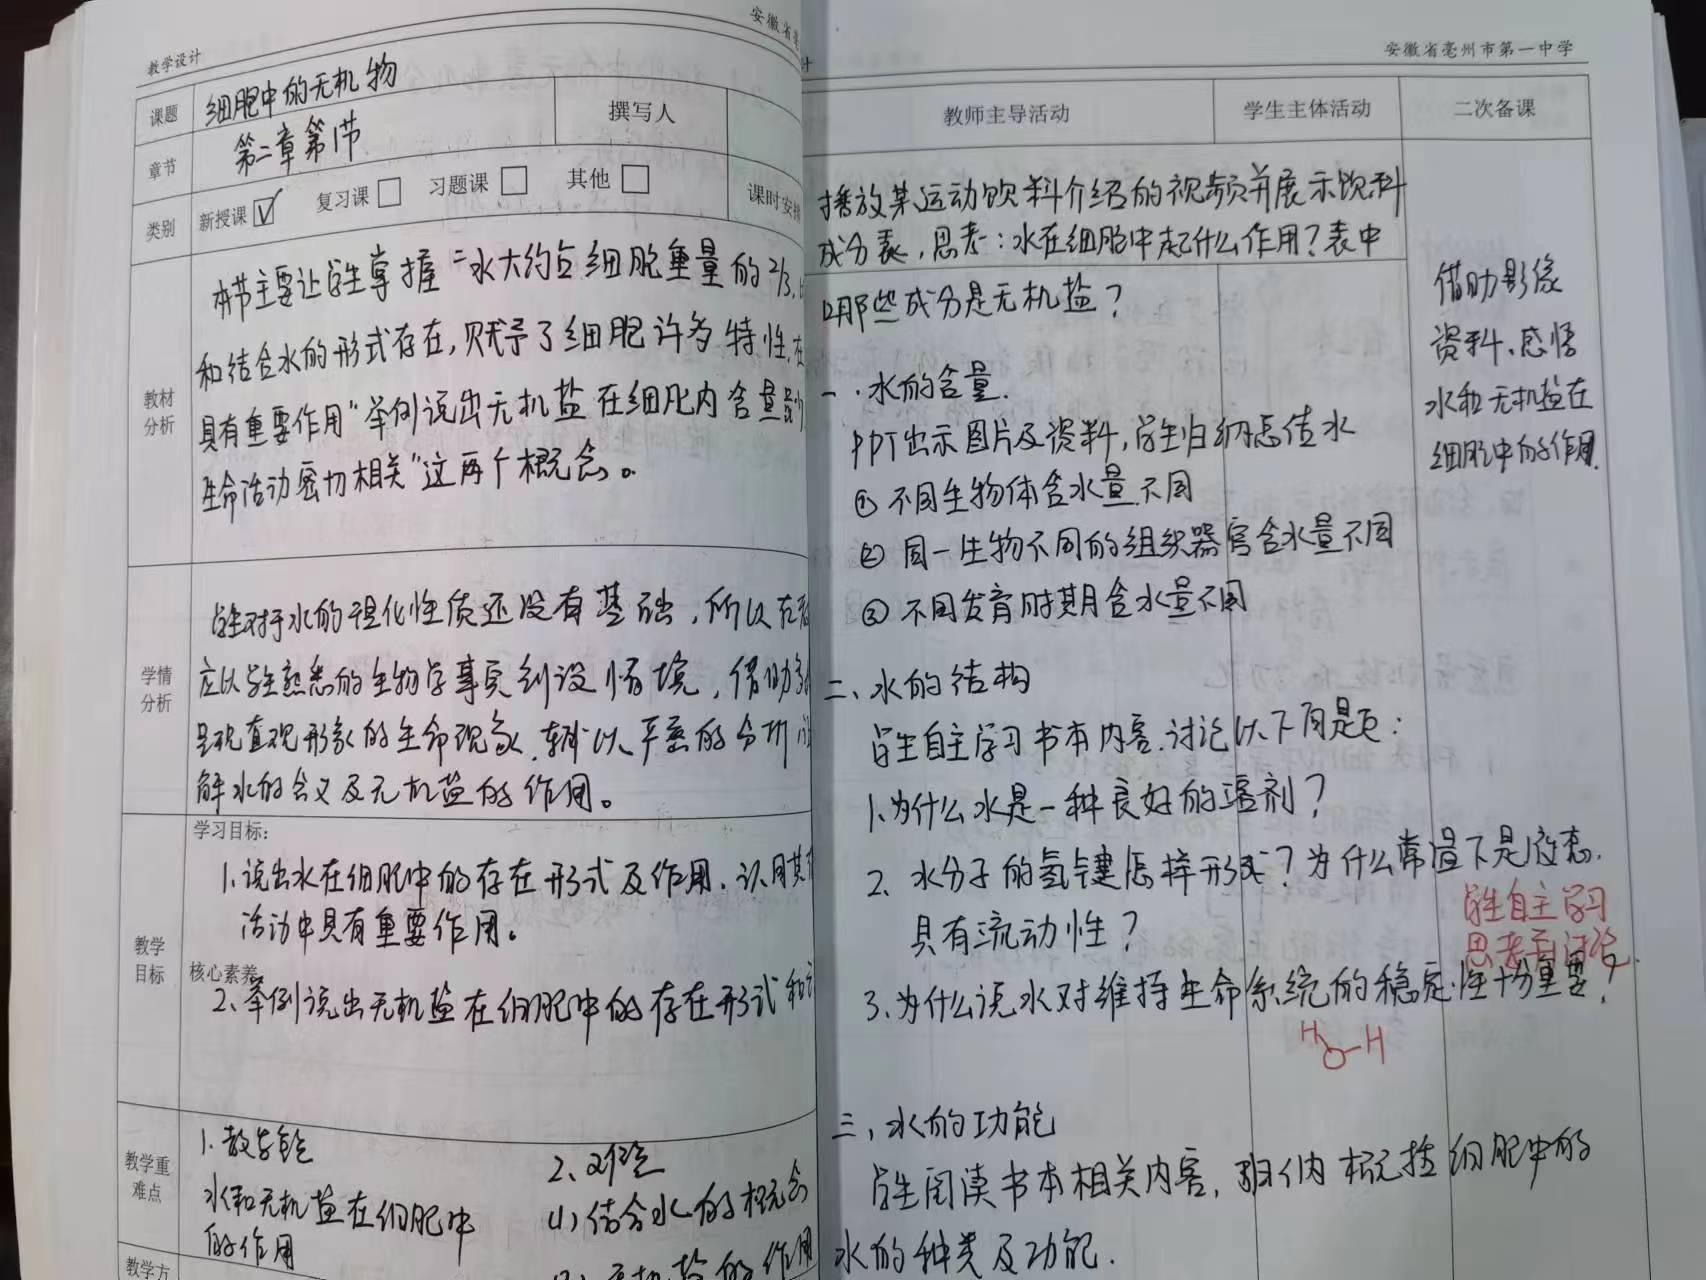 教学设计
安徽省亳
课题 细胞中的无机物 撰写人
章节 第二章第1节
类别 新授课 复习课 习题课 其他 课时安排
教材分析
本节主要让学生掌握“水大约占细胞重量的2/3,
和结合水的形式存在,赋予了细胞许多特性,在
具有重要作用”举例说出无机盐在细胞内含量
生命活动密切相关”这两个概念。
学情分析
学生对于水的理化性质还没有基础,所以在
应以学生熟悉的生物学事实创设情境,借助
呈现直观形象的生命现象,辅以严密的分析
解水的含义及无机盐的作用。
教学目标
学习目标:
1.说出水在细胞中的存在形式及作用,认同其
活动中具有重要作用。
核心素养
2、举例说出无机盐在细胞中的存在形式和
教学重难点
1.教学重点
水和无机盐在细胞中
的作用
2、难点
(1)结合水的概念
无机盐的作用
教学方
安徽省亳州市第一中学
计
教师主导活动 学生主体活动 二次备课
播放某运动饮料介绍的视频并展示饮料
成分表,思考:水在细胞中起什么作用?表中
哪些成分是无机盐?
一.水的含量.
PPT出示图片及资料,学生归纳总结水
①不同生物体含水量不同
②同一生物不同的组织器官含水量不同
③不同发育时期含水量不同
二、水的结构
学生自主学习书本内容.讨论以下问题:
1.为什么水是一种良好的溶剂?
2、水分子的氢键怎样形成?为什么常温下是液态,
具有流动性?
3.为什么说水对维持生命系统的稳定性十分重要?
H O-H
三,水的功能
学生阅读书本相关内容,归纳概括细胞中的
水的种类及功能.
借助影像
资料,感悟
水和无机盐在
细胞中的作用.
学生自主学习
思考和讨论.